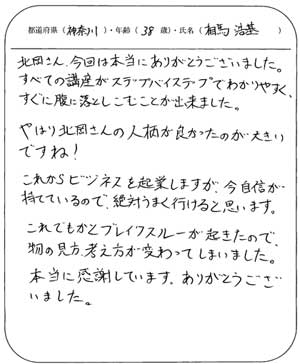 都道府県（神奈川）・年齢（38 歳）・氏名（相馬 浩基）
北岡さん、今回は本当にありがとうございました。
すべての講座がステップバイステップでわかりやすく、
すぐに腹に落としこむことが出来ました。
やはり北岡さんの人柄が良かったのが大きい
ですね！
これからビジネスを起業しますが、今自信が
持てているので、絶対うまく行けると思います。
これでもかとブレイクスルーが起きたので、
物の見方、考え方が変わってしまいました。
本当に感謝しています。ありがとうござ
いました。